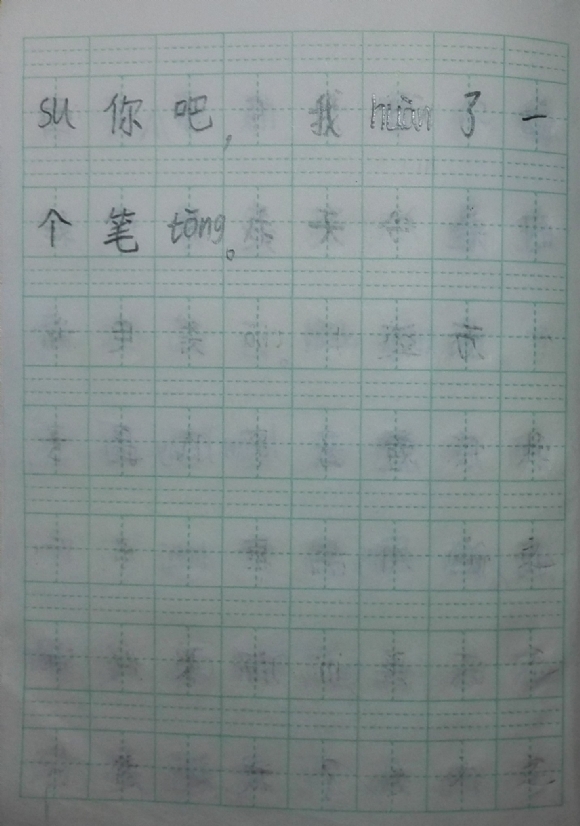 su你吧,我huàn了一
个笔tōng。